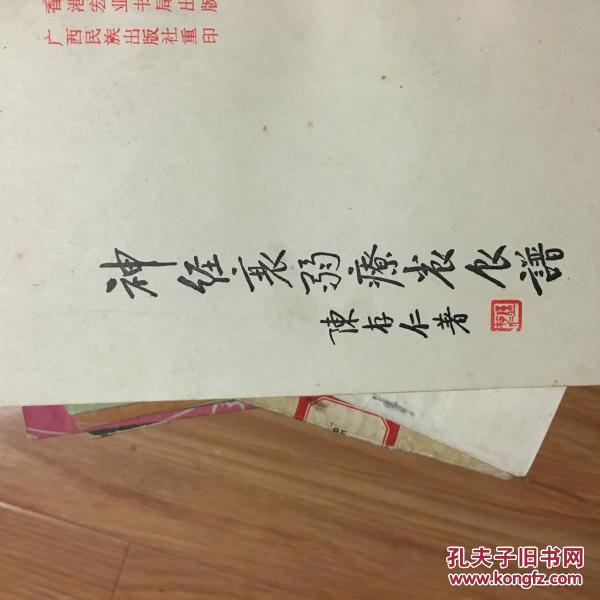 香港宏业书局出版
广西民族出版社重印
神経衰弱療养食譜
陳存仁著
孔夫子旧书网
www.kongfz.com